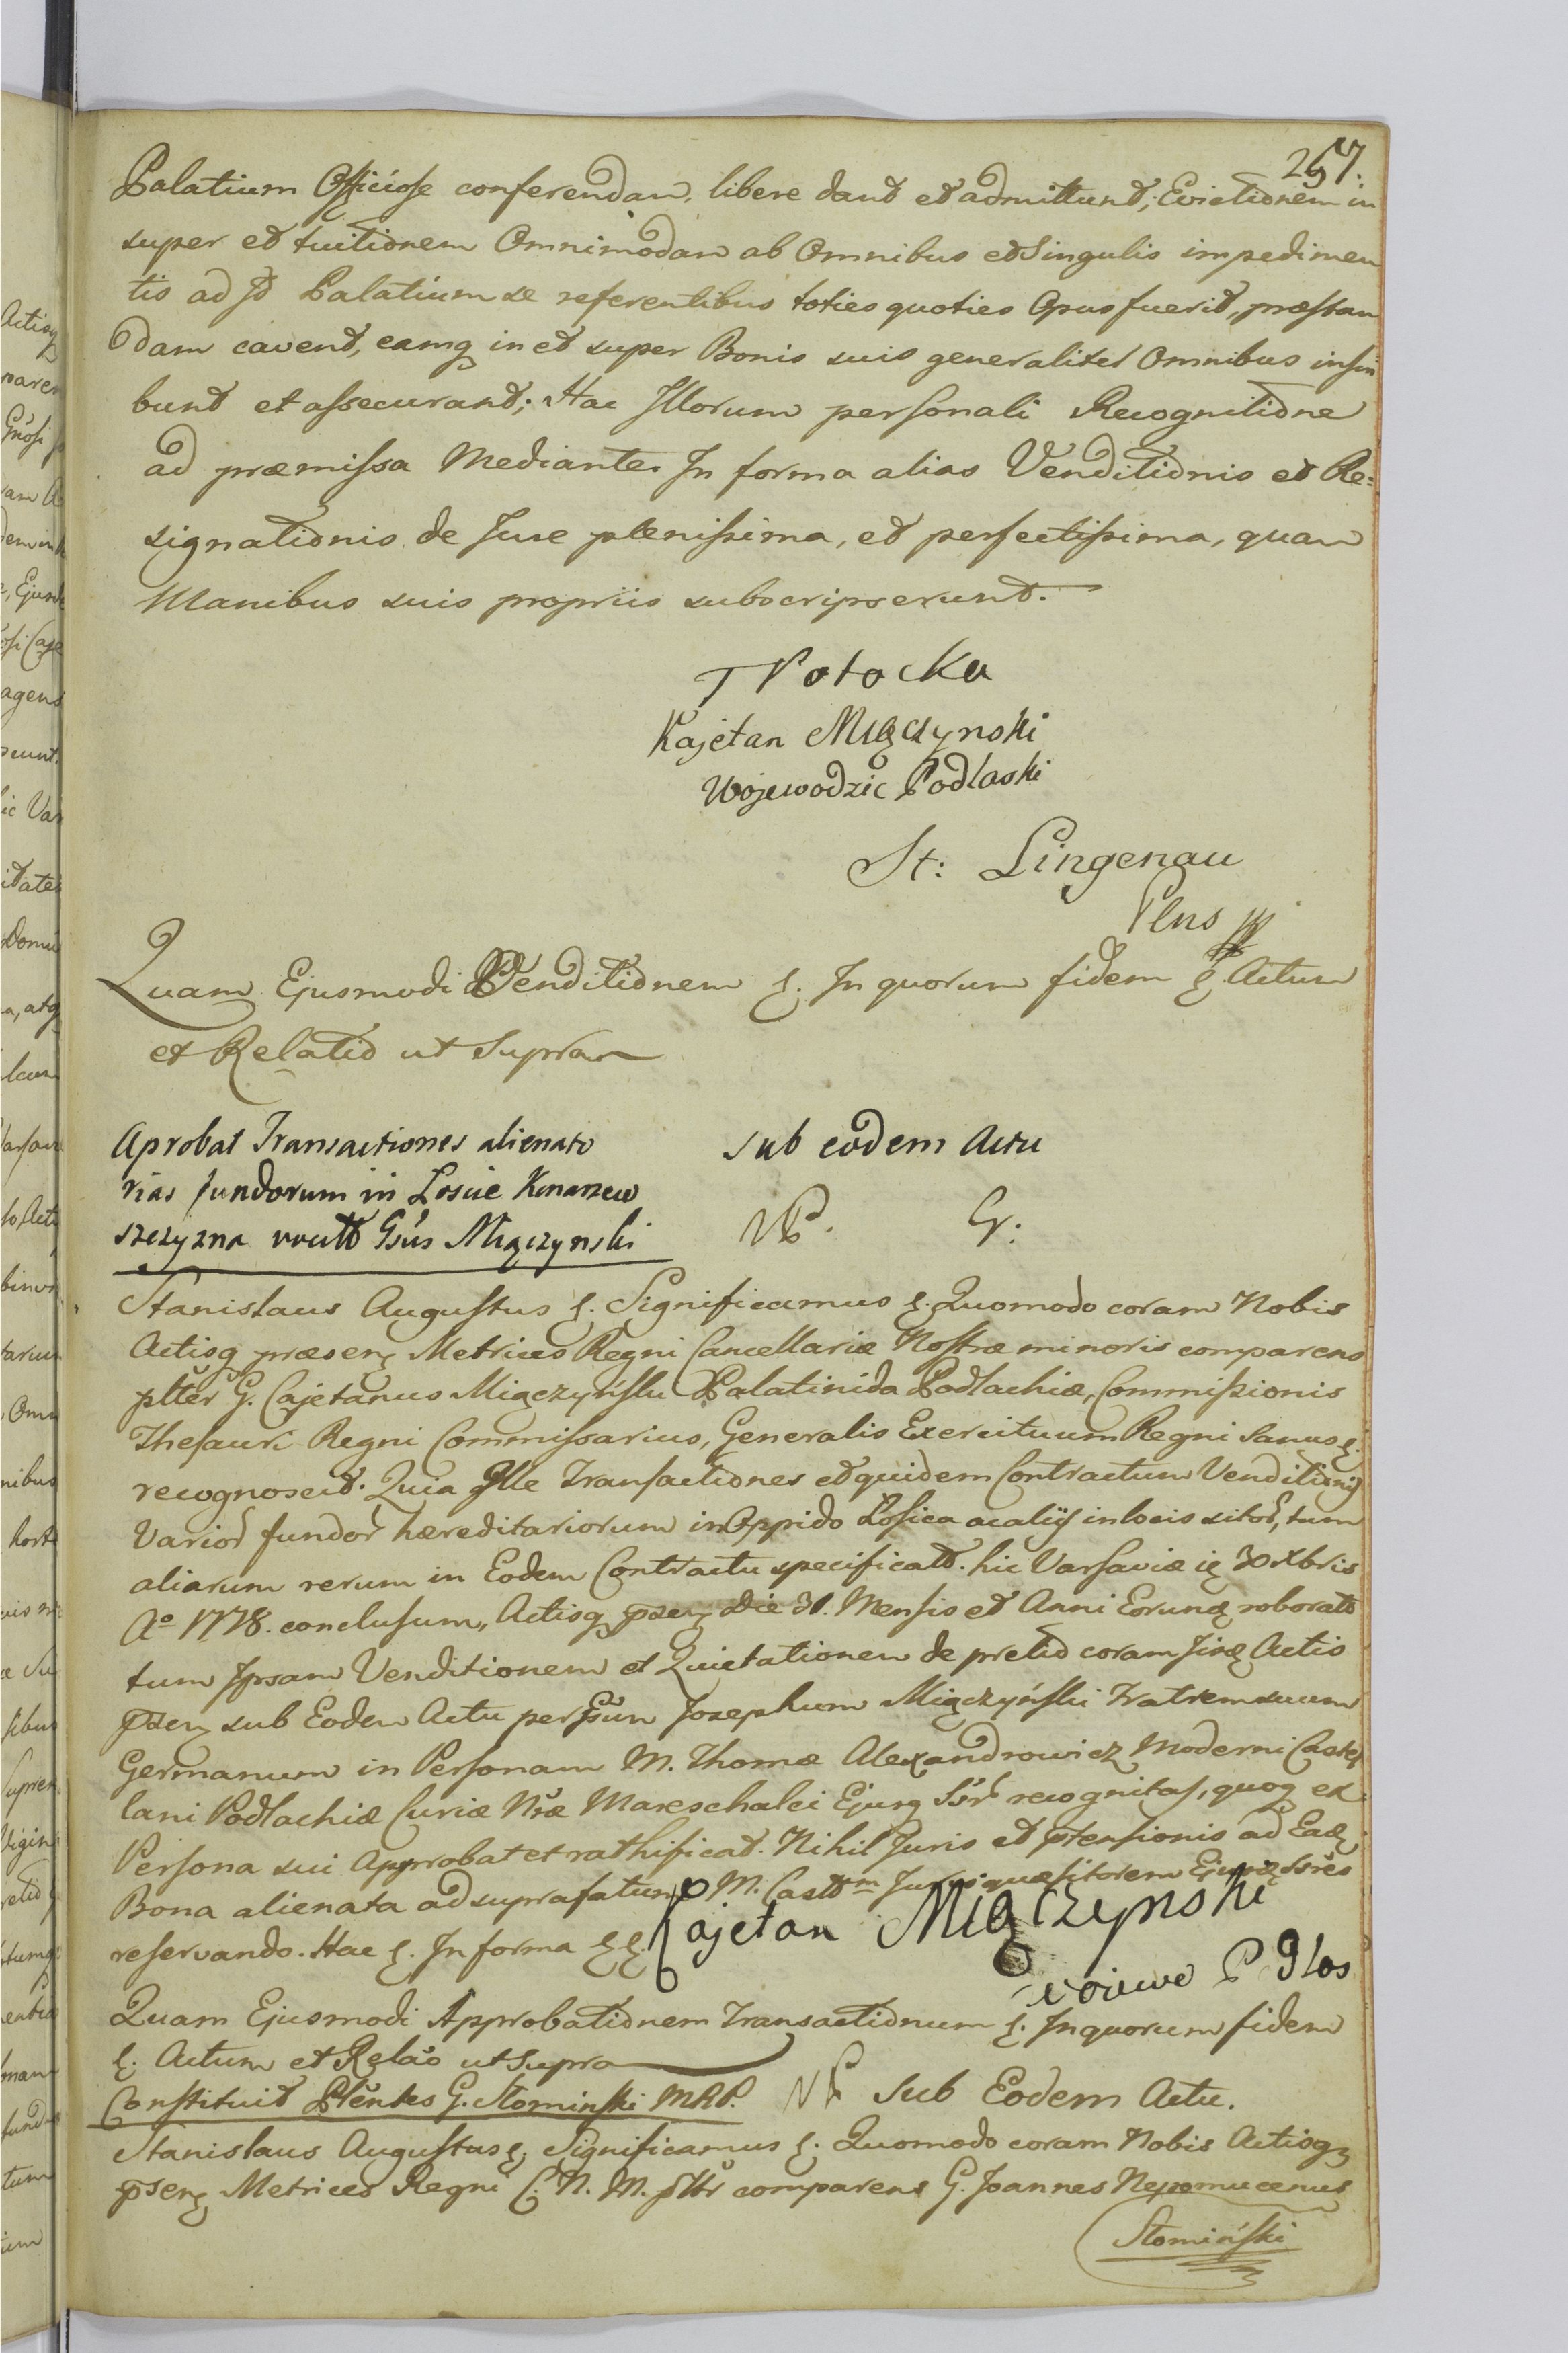 257.
Palatium Officiose conferendam, libere dant et admittunt; Evictionem in
super et tuitionem Omnimodam ab Omnibus et Singulis impedimen
tis ad Palatium se referentibus toties quoties Opus fuerit, præstan
dam cavent, eamq in et super Bonis suis generaliter Omnibus inscri
bunt et assecurant; Hac Illorum personali Recognitione
ad præmissa Mediante. In forma alias Venditionis et Re=
signationis de Jure plenissima, et perfectissima, quam
Manibus suis propriis subscripserunt.
T Potocka
Kajetan Miączynski
Wojewodzic Podlaski
St: Lingenau
Plns
Quam Ejusmodi Venditionem &. In quorum fidem & Actum
et Relatio ut Supra
Aprobat Transactiones alienato
rias fundorum in Losice Konarzew
szczyzna vocatt Gsus Miączynski
Sub eodem Actu
NP. G.
Stanislaus Augustus &. Significamus &. Quomodo coram Nobis
Actisq præsen Metrices Regni Cancellariæ Nostræ minoris comparens
plter G. Cajetanus Miączyński Palatinida Podlachiæ, Commissionis
Thesauri Regni Commissarius, Generalis Exercituum Regni Sanus &.
recognoscit. Quia Ille Transactiones et quidem Contractum Venditionis
Varior fundor hæreditariorum in Oppido Losica ac aliis in locis sitor, tum
aliarum rerum in Eodem Contractu specificatt. hic Varsaviæ 30 Xbris
Ao 1778. conclusum, Actisq pæsen Die 31. Mensis et Anni Eorund roboratt
tum Ipsam Venditionem et Quietationem de pretio coram Actis
pæsen sub Eodem Actu per Gsum Josephum Miączyński Fratrem suum
Germanum in Personam M. Thomæ Alexandrowicz Moderni Castel
lani Podlachiæ Curiæ Nræ Mareschalci Ejusq recognitas, quoq ex
Persona sui Approbat et rathificat. Nihil Juris et ptensionis ad Ead
Bona alienata ad suprafatum M. Casttm Juris quæsitorem Ejusq Ssres
reservando. Hac &. In forma &&.
Kajetan Miączynski
Quam Ejusmodi Approbationem Transactionum &. In quorum fidem
&. Actum et Relao ut Supra
Constituit Plentes G. Słominski MRP.
NP Sub Eodem Actu.
Stanislaus Augustus &. Significamus &. Quomodo coram Nobis Actisq
pæsen Metrices Regni C. N. M. pltr comparens G. Joannes Nepomucenus
Słomiński